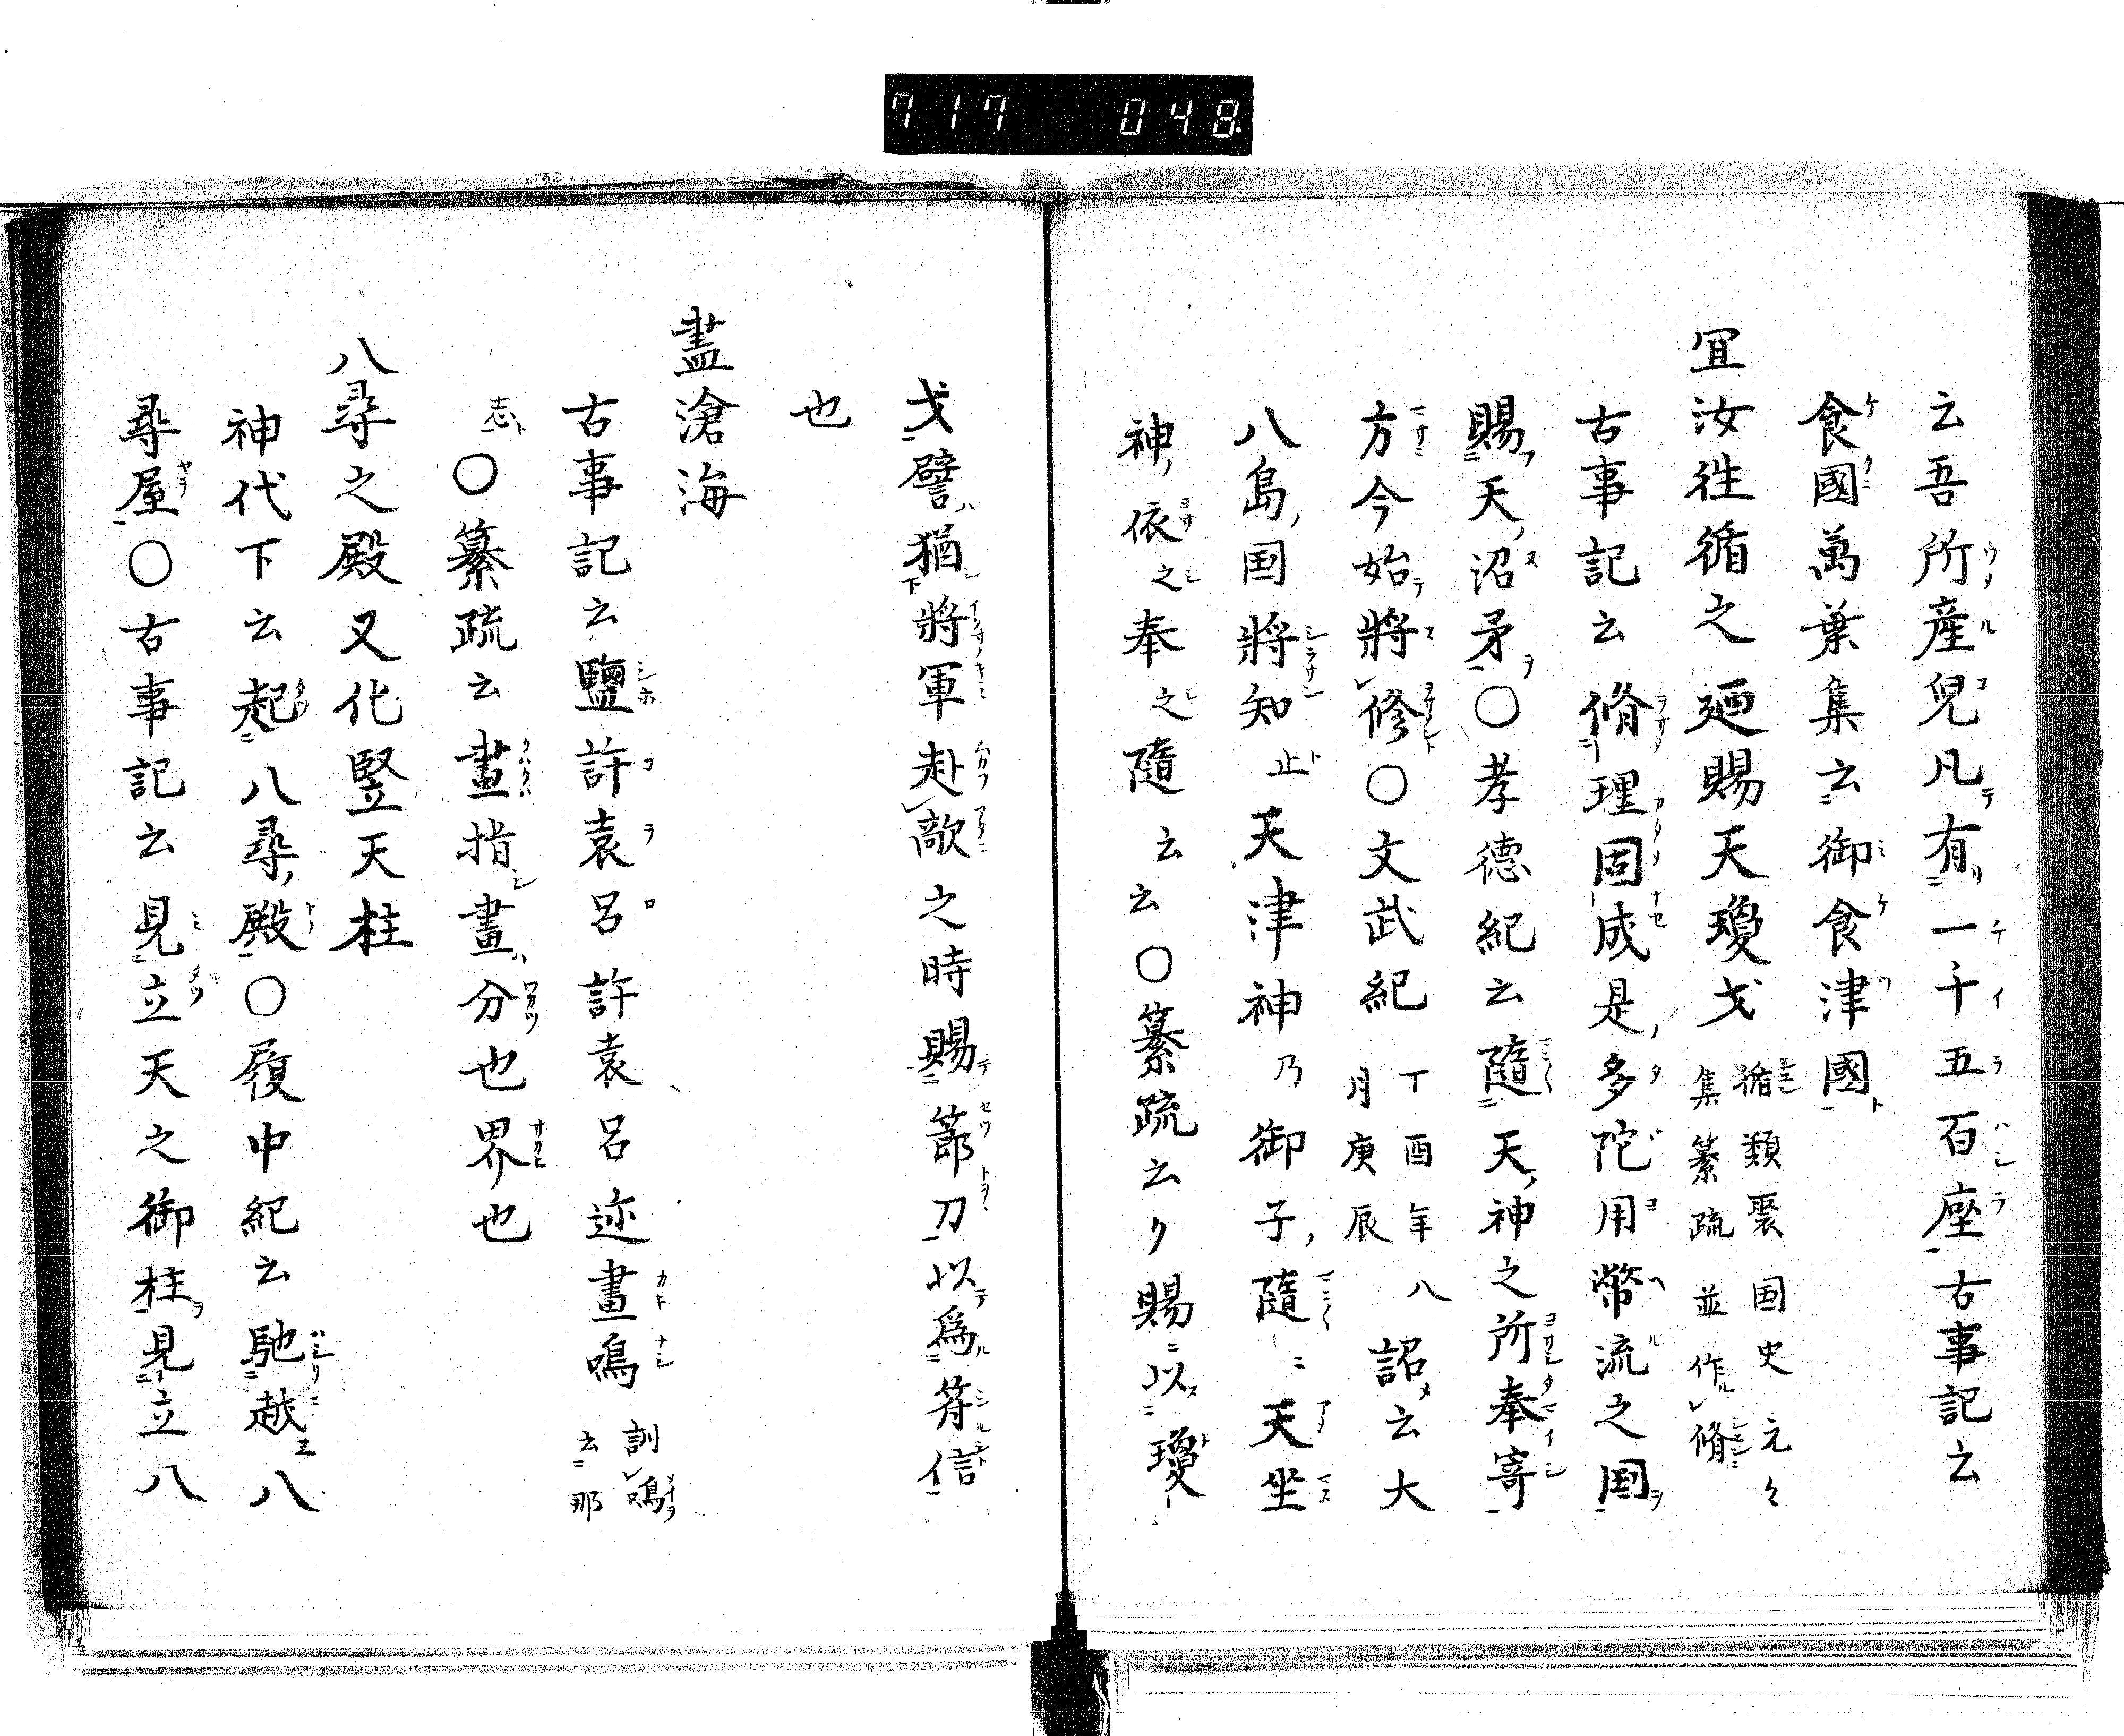 717 048
云吾所産兒凡有一千五百座古事記云
食國萬葉集云御食津國
宜汝徃循之廼賜天瓊戈循類聚国史元々
集纂疏並作脩
古事記云脩理固成是多陀用幣流之国
賜天沼矛〇孝徳紀云隨天神之所奉寄
方今始將修〇文武紀丁酉年八
月庚辰詔云大
八島国將知止天津神乃御子隨天坐
神依之奉之隨云云〇纂疏云賜以瓊
戈譬猶將軍赴敵之時賜節刀以爲符信
也
畫滄海
古事記云鹽許袁呂許袁呂迩畫鳴訓鳴
云那
志〇纂疏云畫指畫分也界也
八尋之殿又化竪天柱
神代下云起八尋殿〇履中紀云馳越八
尋屋〇古事記云見立天之御柱見立八